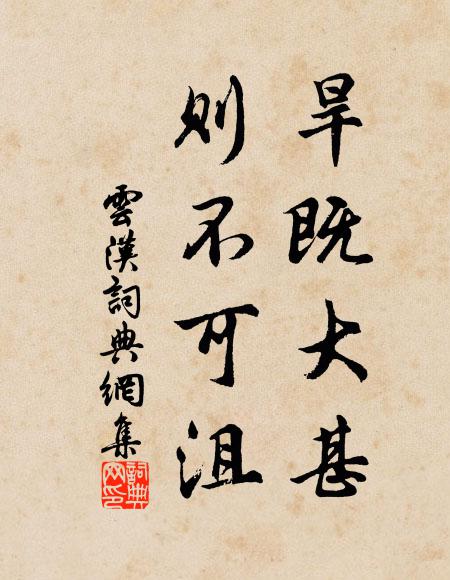 旱既大甚
则不可沮
雲漢詞典網集
詞典
网印